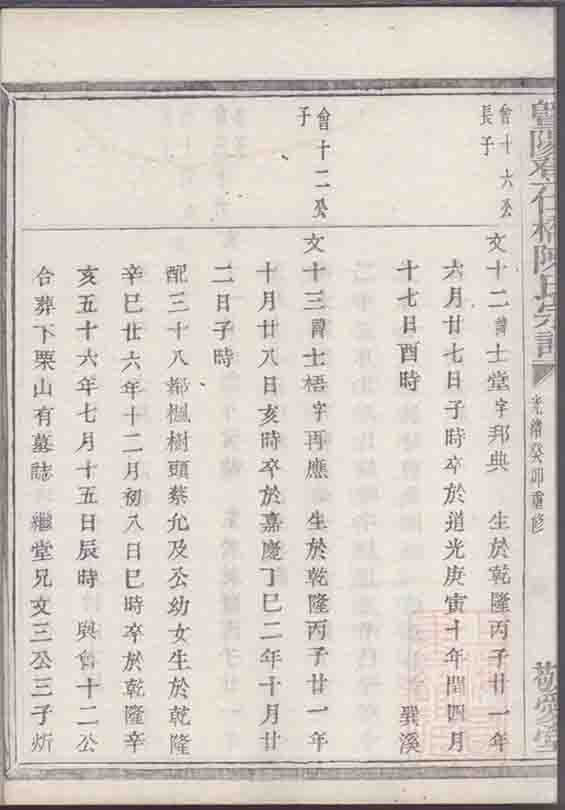 暨陽孝石橋陳氏宗譜
光緒癸卯重修
敬愛堂
會十六公
長子
文十二諱士堂字邦典 生於乾隆丙子廿一年
六月廿七日子時卒於道光庚寅十年閏四月
十七日酉時 巽溪
會十二公
子
文十三諱士梧字再應 生於乾隆丙子廿一年
十月廿八日亥時卒於嘉慶丁巳二年十月廿
二日子時
配三十八都楓樹頭蔡允及公幼女生於乾隆
辛巳廿六年十二月初八日巳時卒於乾隆辛
亥五十六年七月十五日辰時 與會十二公
合葬下栗山有墓誌 繼堂兄文三公三子炘